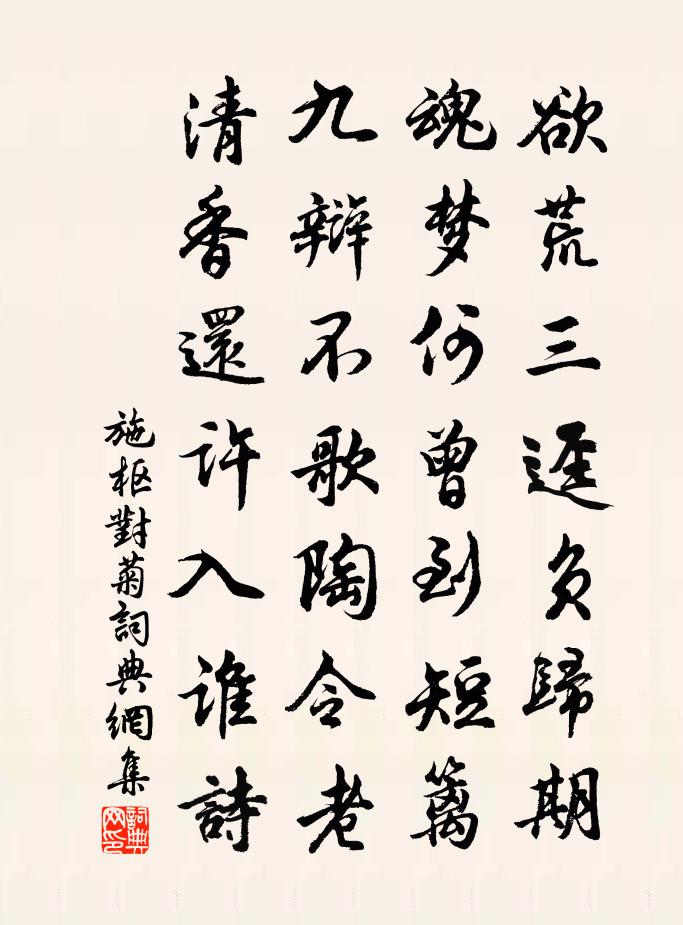 欲荒三逕负歸期
魂梦何曾到短籬
九辯不歌陶令老
清香還许入谁詩
施枢對菊詞典網集
詞典网印